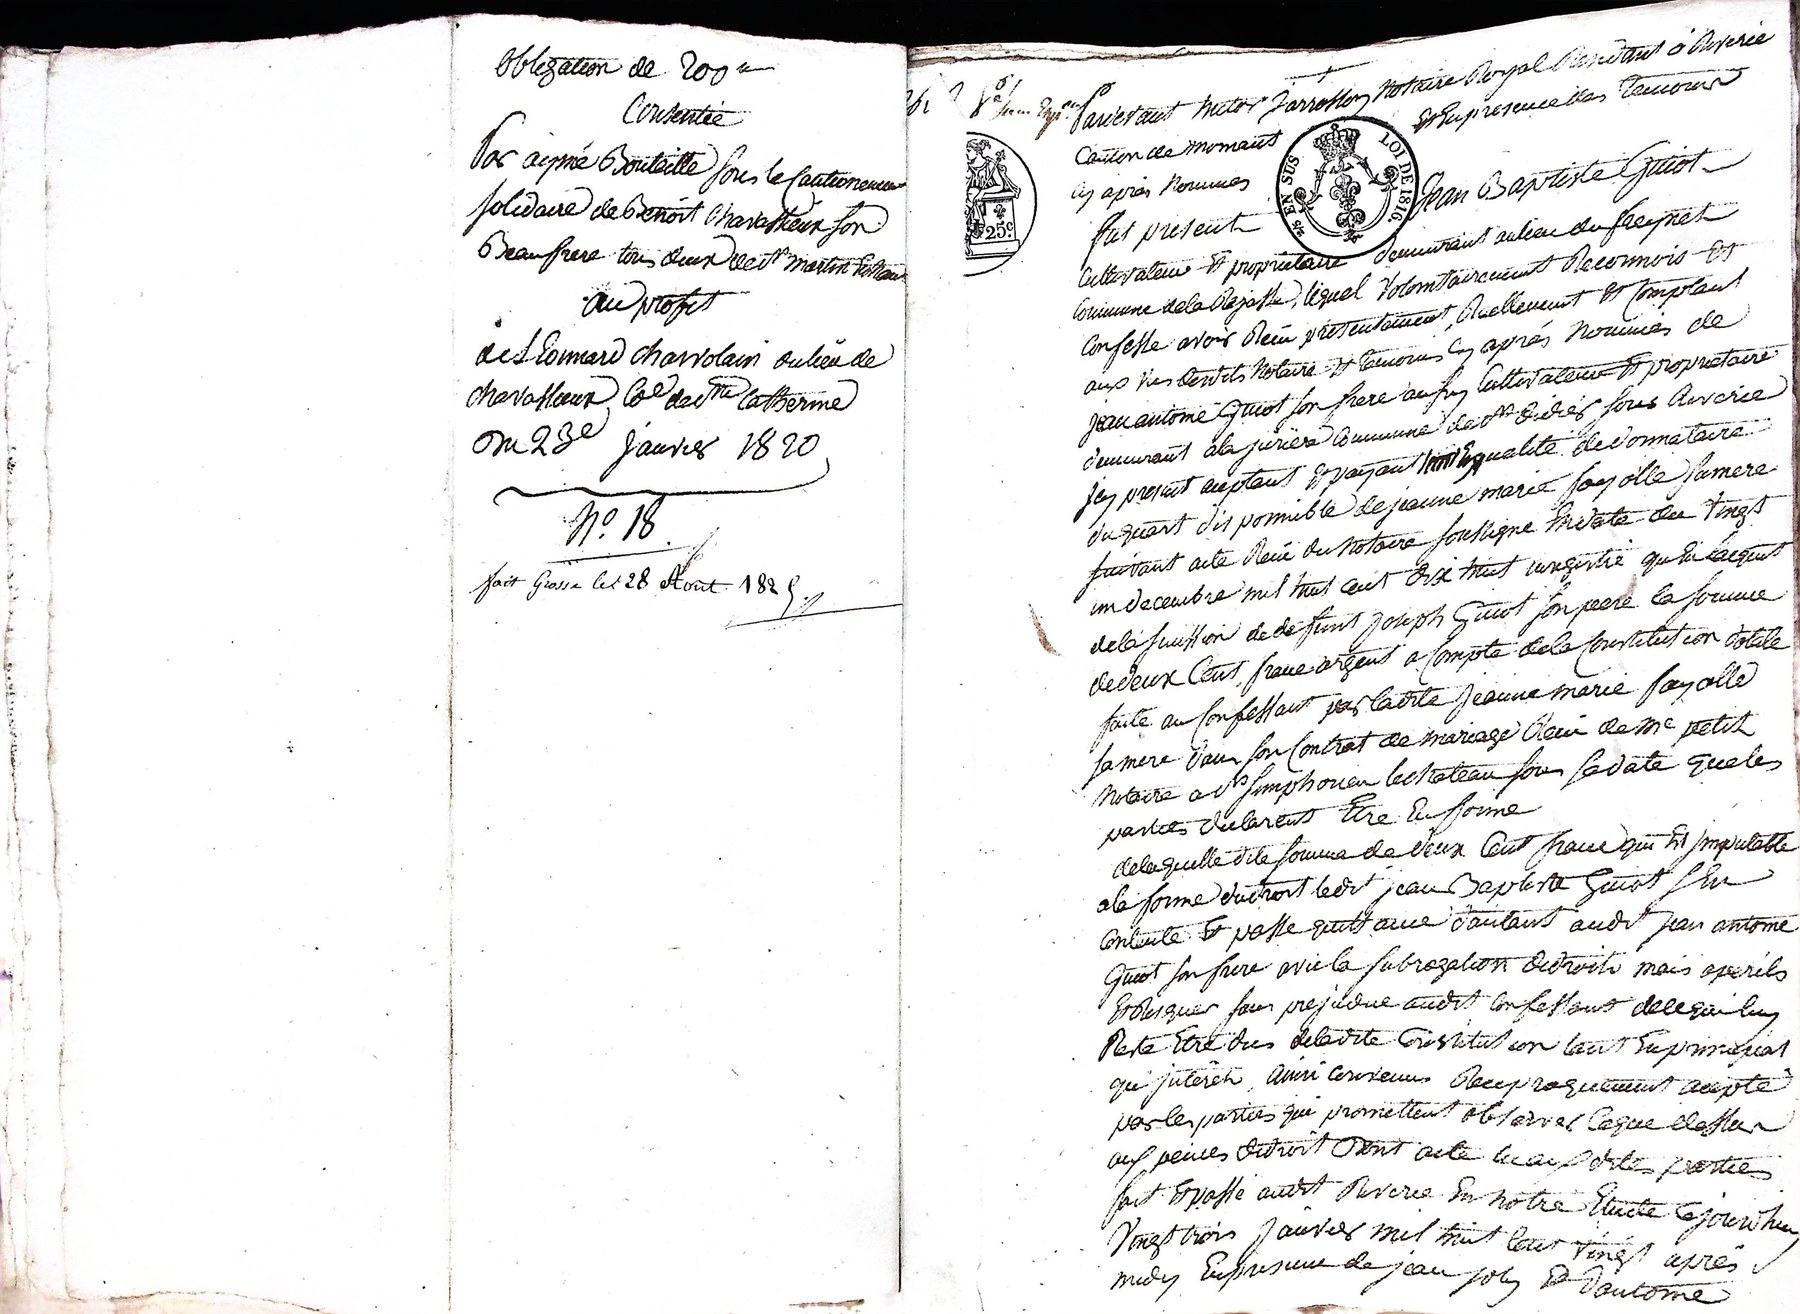 Obbligation de 200 #
Consentie
Par aymé Bouteille sous le Cautionnement
solidaire de Benoit Chavassieux son
Beaufrere tous deux de st martin
au profit
de Leonnard charvolain du lieu de
chavassieux Cne de ste catherine
Du 23e janvier 1820
No. 18.
fait Grosse le 28 Aout 1825.
25c
5/2 EN SUS
LOI DE 1816.
Pardevant Notaire Royal Residant à Riverie
Canton de mornant et En presence des Temoins
cy après Nommes
fut present Jean Baptiste Guiot
Cultivateur Et proprietaire demeurant au lieu du
Commune de la Rajasse, lequel Volontairement Reconnois Et
Confesse avoir Recu presentement, Reellement Et Comptant
aux vus desdits Notaire Et temoins cy après Nommés de
Jean antoine Guiot son frere aussy Cultivateur Et proprietaire
demeurant a la jurière Commune de st didier sous Riverie
Icy present acceptant Et payant En qualité de donnataire
du quart disponnible de jeanne marie fayolle sa mere
suivant acte Recu du Notaire soussigné En date du vingt
un decembre mil huit cent dix huit Enregistré qu'En
de la sucession de defunt joseph Guiot son pere la somme
de deux Cent franc argent a Compte de la Constitution dotale
faite au Confessant par ladite jeanne marie fayolle
sa mere dans son Contrat de mariage Recu de me petit
Notaire a st simphorien le chateau sous sa date que les
parties declarent Etre En forme
de laquelle dite somme de deux Cent franc qui Est jmputable
a la forme du droit ledit jean Baptiste Guiot s'En
Contente Et passe quittance d'autant audit jean antoine
Guiot son frere avec la subrogation de droit mais a perils
Et Risques sans prejudice audit Confessant de ce qui luy
Reste Etre dus de ladite Constitution tant En principal
qu'jnterêts, ainsi convenus Reciproquement accepté
par les parties qui promettent observer Ce que dessus
aux peines de droit Dont acte lu aux dites parties
fait Et passé audit Riverie En notre Etude Cejourd'huy
Vingt trois Janvier mil huit Cent vingt après
midy En presence de jean joly Et d'antoine